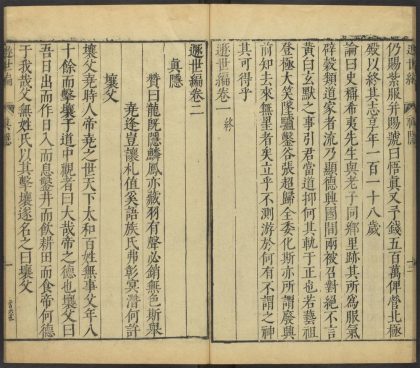 仍賜紫服并賜號曰悟真又予錢五百萬俾營北極
殿以終其志享年一百一十八歲
論曰史稱希夷先生與老子同鄉里跡其所為服氣
辟穀類道家者流乃顯德興國間兩被召對絕不言
黃白玄默之事引君當道抑何其軌于正也若藝祖
登極大笑墜驢鑿谷張超歸全委化斯亦所謂廢興
前知去來無罣者矣立乎不測游於何有不謂之神
其可得乎
遯世編卷一 終
遯世編卷二
真隱
贊曰龍旣隱鱗鳳亦藏羽有聲必銷無色斯舉
堯逢豈讓札值奚語族氏弗彰冥潛何許
壤父
壤父堯時人帝堯之世天下太和百姓無事父年八
十餘而擊壤于道中觀者曰大哉帝之德也壤父曰
吾日出而作日入而息鑿井而飲耕田而食帝何德
于我哉父無姓氏以其擊壤遂名之曰壤父
遯世編 真隱 一